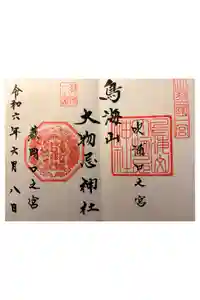 鳥海山
大物忌神社
吹浦口之宮
蕨岡口之宮
令和六年六月八日